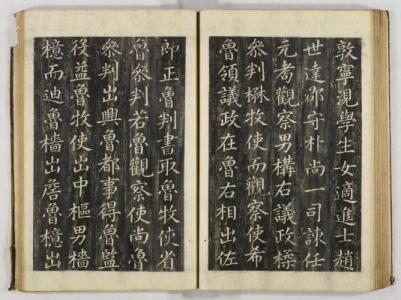 敦寧混學生女適進士趙
世達郡守朴尚一司諫任
元耈觀察男構右議政楺
參判楙牧使而觀察使希
魯領議政在魯右相出佐
郎正魯判書取魯牧使省
魯參判若魯觀察使尚魯
參判出興魯都事得魯監
後益魯牧使出中樞男墻
檍而迪魯墻出魯檍出